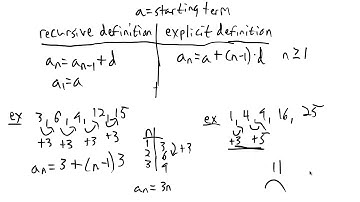 a=starting term
recursive definition explicit definition
aₙ=aₙ₋₁+d aₙ=a+(n-1)·d n≥1
a₁=a
ex 3, 6, 9, 12, 15
+3 +3 +3 +3
aₙ=3+(n-1)3
n
1 3
2 6 +3
3 9
aₙ=3n
ex 1, 4, 9, 16, 25
+3 +5
11